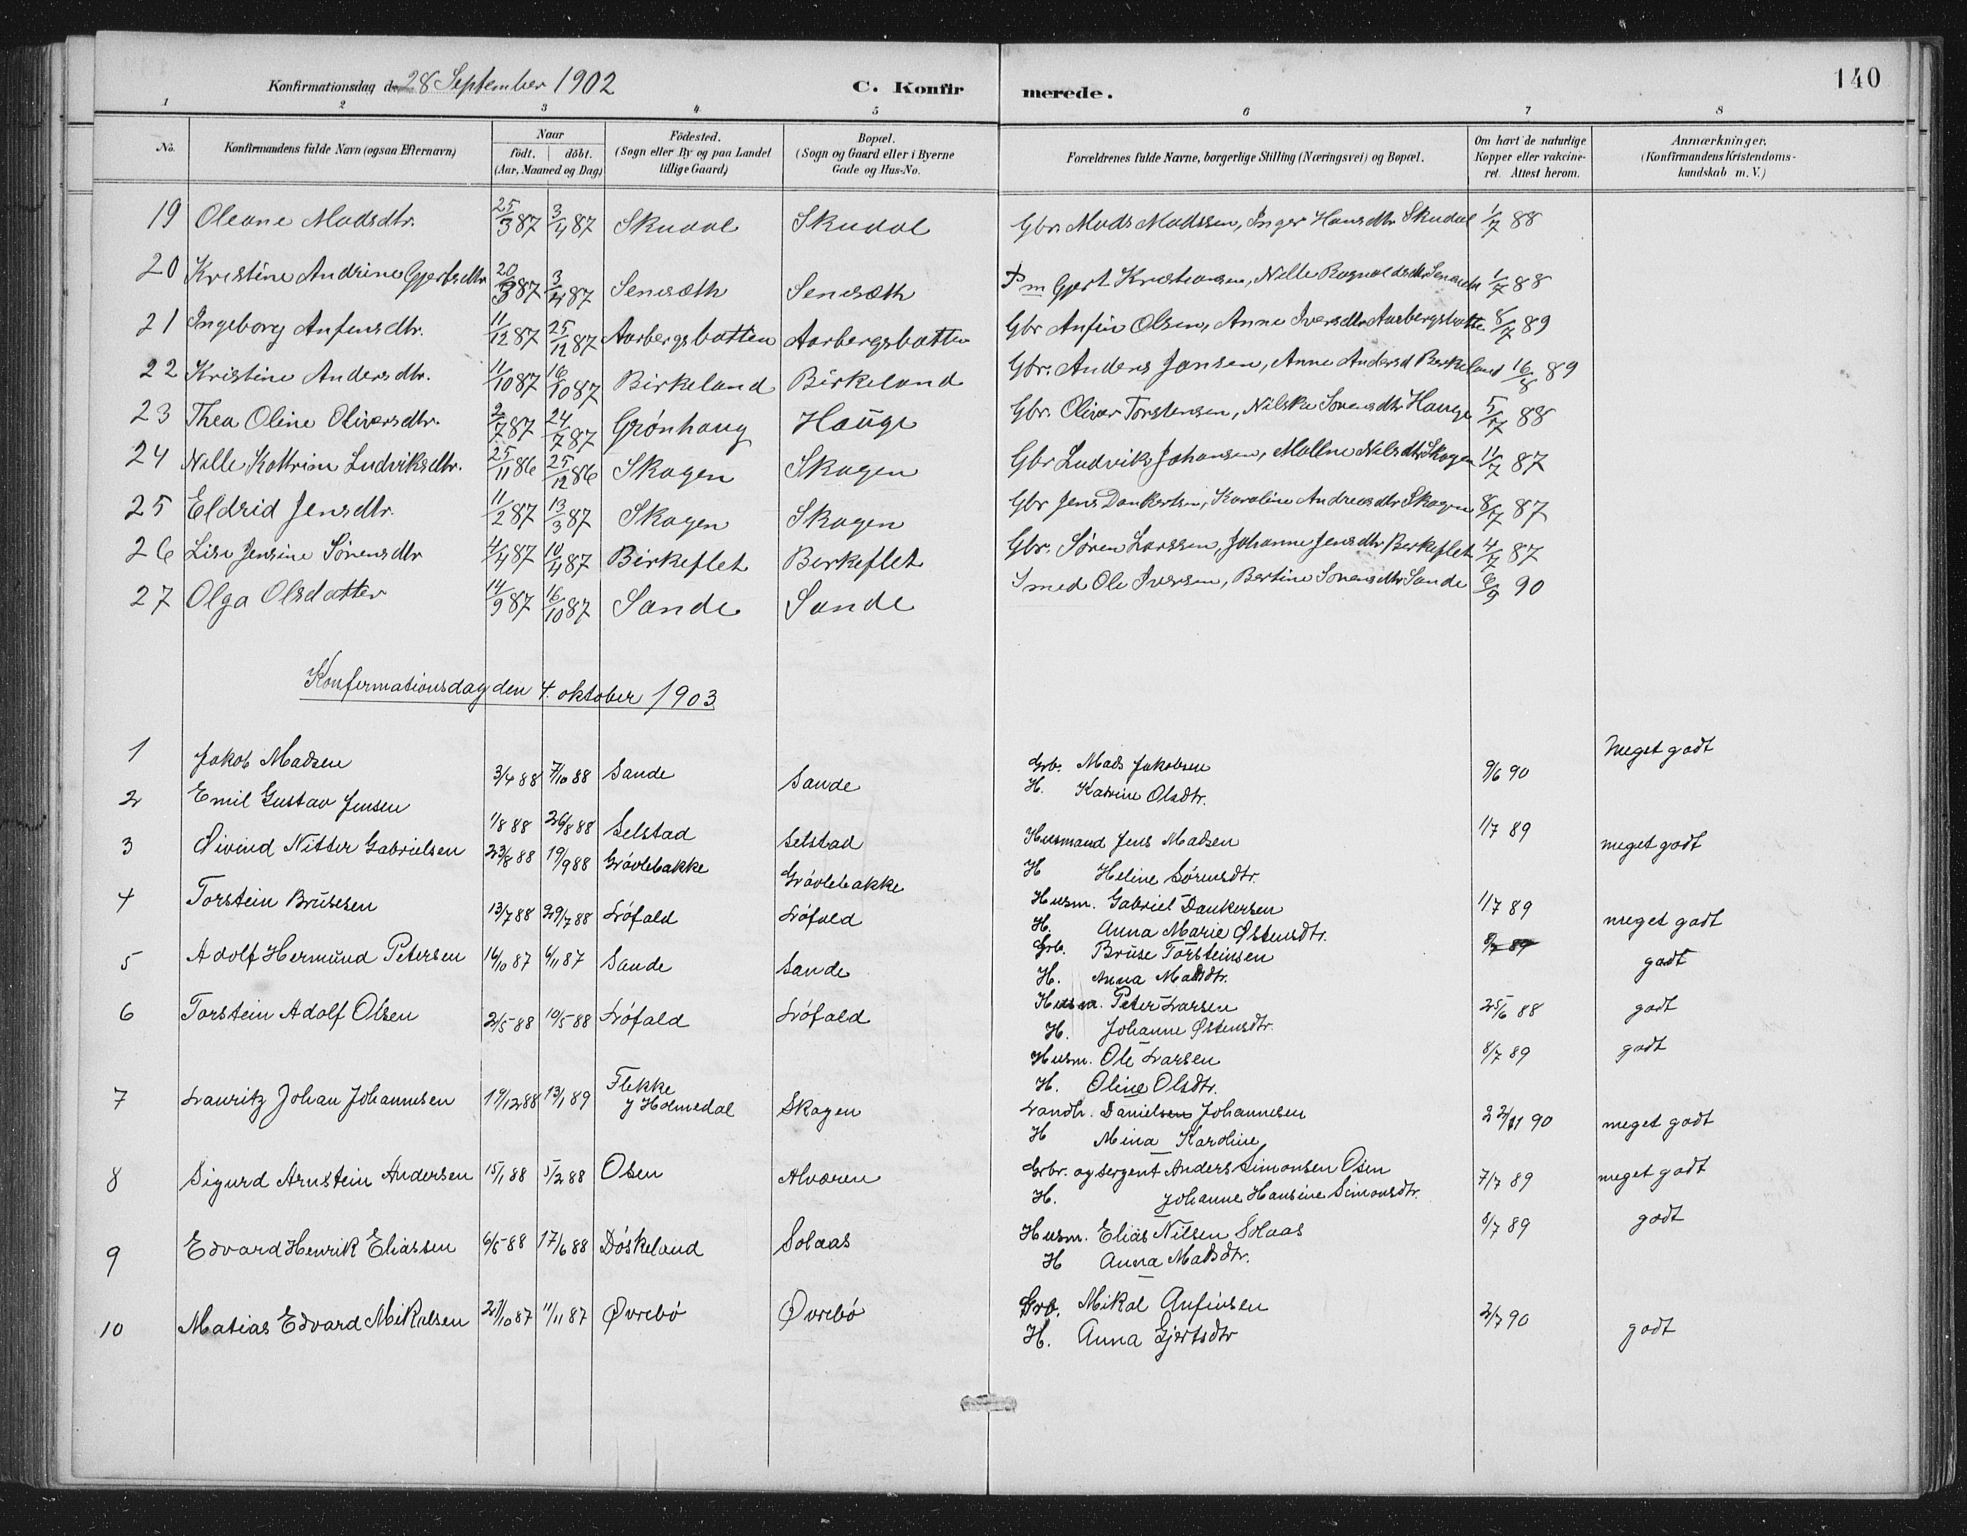 Konfirmationsdag d. 28 September 1902 C. Konfir merede. 140
1 2 3 4 5 6 7 8
No. Konfirmandens fulde Navn (ogsaa Efternavn) Naar födt. döbt. (Aar, Maaned og Dag) Födested. (Sogn eller By og paa Landet tillige Gaard) Bopæl. (Sogn og Gaard eller i Byerne Gade og Hus-No. Forældrenes fulde Navne, borgerlige Stilling (Næringsvei) og Bopæl. Om havt de naturlige Kopper eller vakcineret. Attest herom. Anmærkninger. (Konfirmandens Kristendomskundskab m. V.)
19 Oleane Madsdtr. 25/3 87 3/4 87 Skudal Skudal Gbr. Mads Madssen, Inger Hansdtr Skudal 1/7 88
20 Kristine Andrine Gjertsdtr 20/3 87 3/4 87 Senesæth Senesæth Pm Gjert Kristiansen, Nille Ragnoldsdtr 1/7 88
21 Ingeborg Anfinsdtr. 11/12 87 25/12 87 Aarbergsbotten Aarbergsbotten Gbr Anfin Olsen, Anne Iversdtr Aarbergsbotte 8/7 89
22 Kristine Andersdtr. 11/10 87 16/10 87 Birkeland Birkeland Gbr. Anders Jansen, Anne Andersd Birkeland 16/8 89
23 Thea Oline Oliversdtr. 2/7 87 24/7 87 Grønhaug Hauge Gbr. Oliver Torstensen, Nilska Sørensdtr Hauge 5/7 88
24 Nille Kattrine Ludviksdtr. 25/11 86 25/12 86 Skagen Skagen Gbr Ludvik Johansen, Mallne Nilsdtr Skogen 11/7 87
25 Eldrid Jensdtr. 11/2 87 13/3 87 Skagen Skagen Gbr Jens Dankertsen, Karoline Andreasdtr Skagen 8/7 87
26 Lise Jensine Sørensdtr 4/4 87 10/4 87 Birkeflet Birkeflet Gbr. Søren Larssen, Johanne Jensdtr Birkeflet 4/7 87
27 Olga Olsdatter 14/9 87 16/10 87 Sande Sande Smed Ole Iversen, Bertine Sørensdtr Sande 6/9 90
Konfermationsdag den 4. oktober 1903
1 Jakob Madsen 3/4 88 7/10 88 Sande Sande Grb. Mads Jakobsen 9/6 90 Meget godt
H. Katrine Olsdtr.
2 Emil Gustav Jensen 1/8 88 26/8 88 Selstad Selstad Husmand Jens Madsen 1/7 89 meget godt
H Heline Sørensdtr.
3 Øivind Nitter Gabrielsen 23/8 88 19/9 88 Grövlebakke Grövlebakke Husm. Gabriel Dankersen 1/7 89 meget godt
H. Anna Marie Østensdtr.
4 Torstein Brusesen 13/7 88 29/7 88 Löfald Löfald Grb. Bruse Torsteinsen 8/7 89 godt
H. Anna Madsdtr.
5 Adolf Hermund Petersen 16/10 87 6/11 87 Sande Sande Husm. Peter Larsen 25/6 88 godt
H. Johanne Østensdtr.
6 Torstein Adolf Olsen 2/5 88 10/5 88 Löfald Löfald Husm. Ole Larsen 8/7 89 godt
H. Oline Olsdtr.
7 Lauritz Johan Johannesen 19/12 88 13/1 89 Flekke y Holmedal Skagen Landh. Danielsen Johannesen 22/11 90 meget godt
H Mina Karoline
8 Sigurd Arnstein Andersen 15/1 88 5/2 88 Osen Alværen Grbr. og Sergent Anders Simonsen Osen 7/7 89 meget godt
H. Johanne Hansine Simonsdtr.
9 Edvard Henrik Eliassen 6/5 88 17/6 88 Döskeland Solaas Husm. Elias Nilsen Solaas 8/7 89 godt
H Anna Madsdtr.
10 Matias Edvard Mikalsen 27/10 87 11/11 87 Øvrebö Øvrebö Grb. Mikal Anfinsen 2/7 90 godt
H. Anna Gjertsdtr